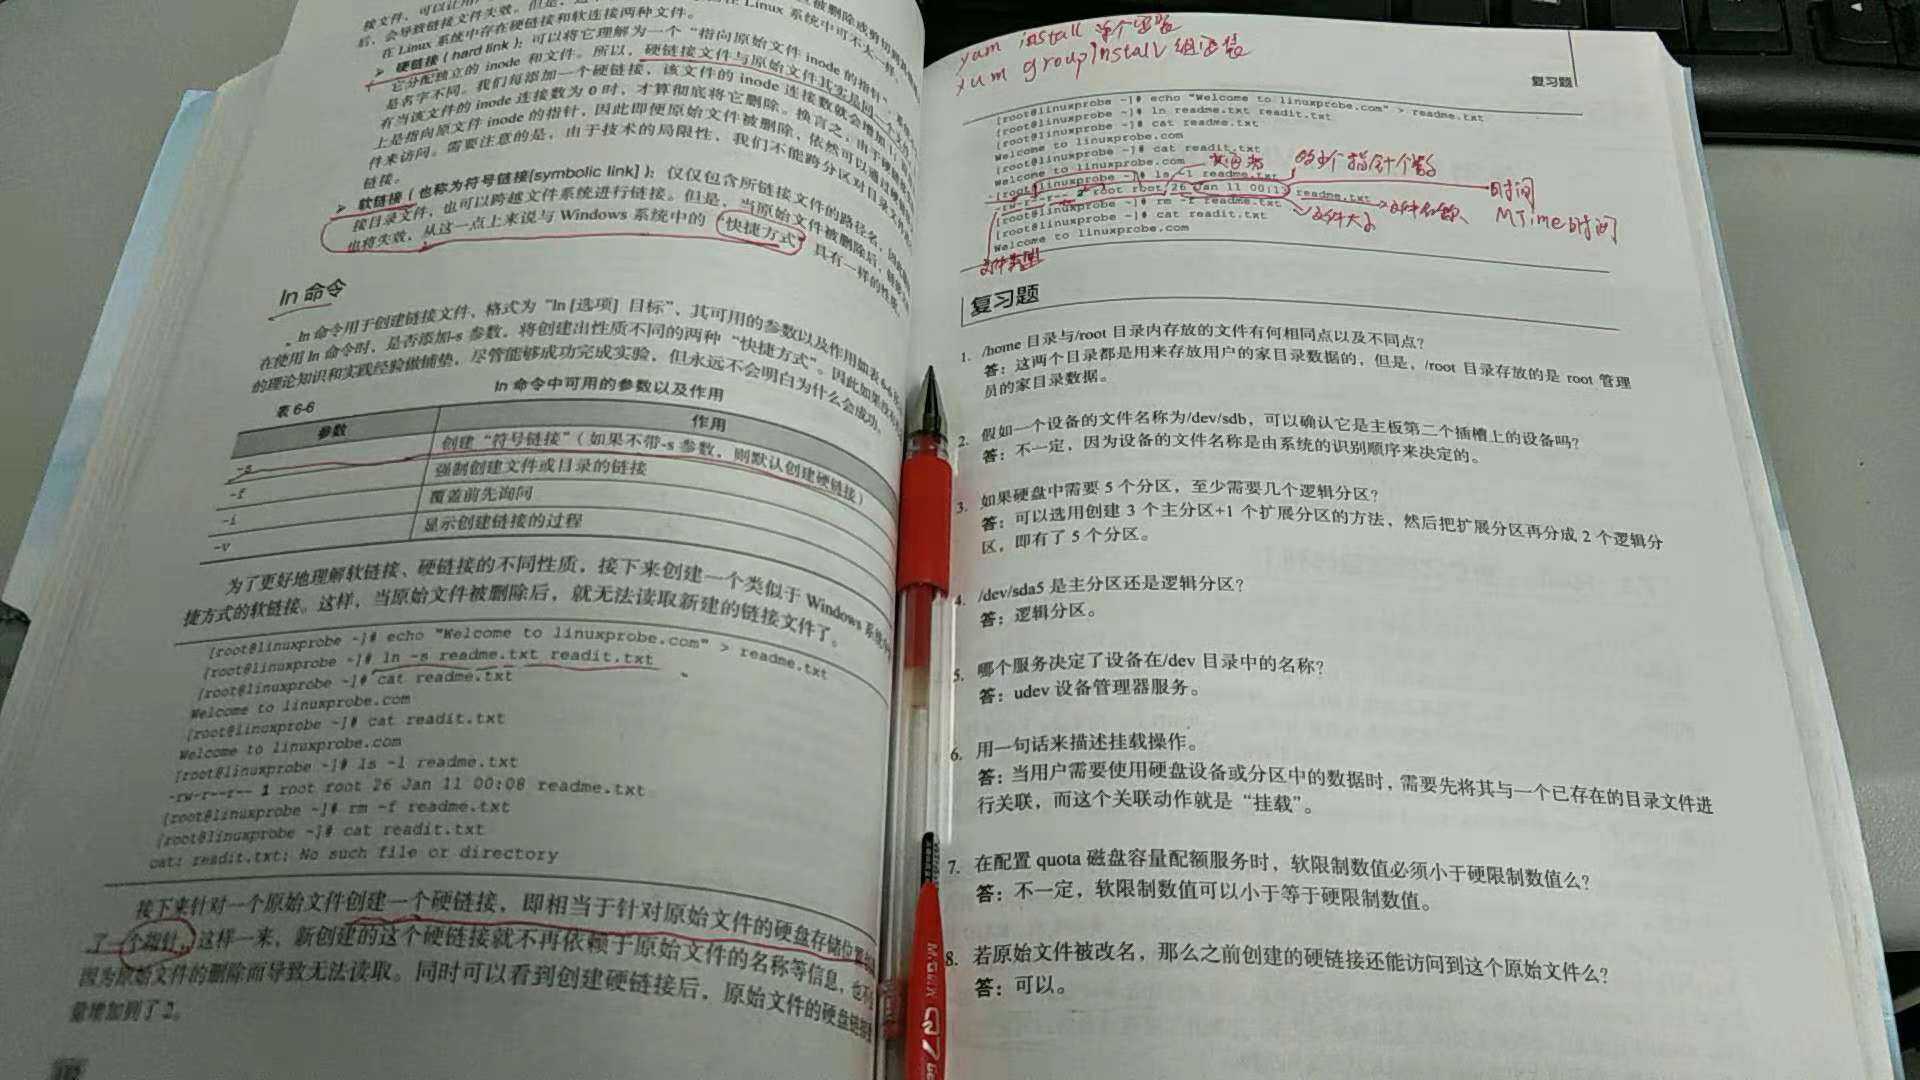 在 Linux 系统中存在硬链接和软连接两种文件。
➢ 硬链接（hard link）：可以将它理解为一个“指向原始文件 inode 的指针”，系统
它分配独立的 inode 和文件。所以，硬链接文件与原始文件其实是同一个文件
是名字不同。我们每添加一个硬链接，该文件的 inode 连接数就会增加 1
有当该文件的 inode 连接数为 0 时，才算彻底将它删除。换言之，由于硬链接
上是指向原文件 inode 的指针，因此即便原始文件被删除，依然可以通过硬链接
件来访问。需要注意的是，由于技术的局限性，我们不能跨分区对目录文件
链接。
➢ 软链接（也称为符号链接[symbolic link]）：仅仅包含所链接文件的路径名，因此
接目录文件，也可以跨越文件系统进行链接。但是，当原始文件被删除后，链接
也将失效，从这一点上来说与 Windows 系统中的“快捷方式”具有一样的性质。
ln 命令
ln 命令用于创建链接文件，格式为“ln [选项] 目标”，其可用的参数以及作用如表 6-6
在使用 ln 命令时，是否添加-s 参数，将创建出性质不同的两种“快捷方式”。因此如果没有
的理论知识和实践经验做铺垫，尽管能够成功完成实验，但永远不会明白为什么会成功。
表 6-6 ln 命令中可用的参数以及作用
参数 作用
-s 创建“符号链接”（如果不带-s 参数，则默认创建硬链接）
-f 强制创建文件或目录的链接
-i 覆盖前先询问
-v 显示创建链接的过程
为了更好地理解软链接、硬链接的不同性质，接下来创建一个类似于 Windows 系统中
捷方式的软链接。这样，当原始文件被删除后，就无法读取新建的链接文件了。
[root@linuxprobe ~]# echo "Welcome to linuxprobe.com" > readme.txt
[root@linuxprobe ~]# ln -s readme.txt readit.txt
[root@linuxprobe ~]# cat readme.txt
Welcome to linuxprobe.com
[root@linuxprobe ~]# cat readit.txt
Welcome to linuxprobe.com
[root@linuxprobe ~]# ls -l readme.txt
-rw-r--r-- 1 root root 26 Jan 11 00:08 readme.txt
[root@linuxprobe ~]# rm -f readme.txt
[root@linuxprobe ~]# cat readit.txt
cat: readit.txt: No such file or directory
接下来针对一个原始文件创建一个硬链接，即相当于针对原始文件的硬盘存储位置
了一个指针，这样一来，新创建的这个硬链接就不再依赖于原始文件的名称等信息，也不
因为原始文件的删除而导致无法读取。同时可以看到创建硬链接后，原始文件的硬盘链接
量增加到了 2。
yum install 单个
yum groupinstall 组
复习题
[root@linuxprobe ~]# echo "Welcome to linuxprobe.com" > readme.txt
[root@linuxprobe ~]# ln readme.txt readit.txt
[root@linuxprobe ~]# cat readme.txt
Welcome to linuxprobe.com
[root@linuxprobe ~]# cat readit.txt
Welcome to linuxprobe.com
[root@linuxprobe ~]# ls -l readme.txt
-rw-r--r-- 2 root root 26 Jan 11 00:13 readme.txt
[root@linuxprobe ~]# rm -f readme.txt
[root@linuxprobe ~]# cat readit.txt
Welcome to linuxprobe.com
指针个数
时间
文件大小
文件名称、
MTime时间
文件类型
复习题
1. /home 目录与/root 目录内存放的文件有何相同点以及不同点？
答：这两个目录都是用来存放用户的家目录数据的，但是，/root 目录存放的是 root 管理
员的家目录数据。
2. 假如一个设备的文件名称为/dev/sdb，可以确认它是主板第二个插槽上的设备吗？
答：不一定，因为设备的文件名称是由系统的识别顺序来决定的。
3. 如果硬盘中需要 5 个分区，至少需要几个逻辑分区？
答：可以选用创建 3 个主分区+1 个扩展分区的方法，然后把扩展分区再分成 2 个逻辑分
区，即有了 5 个分区。
4. /dev/sda5 是主分区还是逻辑分区？
答：逻辑分区。
5. 哪个服务决定了设备在/dev 目录中的名称？
答：udev 设备管理器服务。
6. 用一句话来描述挂载操作。
答：当用户需要使用硬盘设备或分区中的数据时，需要先将其与一个已存在的目录文件进
行关联，而这个关联动作就是“挂载”。
7. 在配置 quota 磁盘容量配额服务时，软限制数值必须小于硬限制数值么？
答：不一定，软限制数值可以小于等于硬限制数值。
8. 若原始文件被改名，那么之前创建的硬链接还能访问到这个原始文件么？
答：可以。